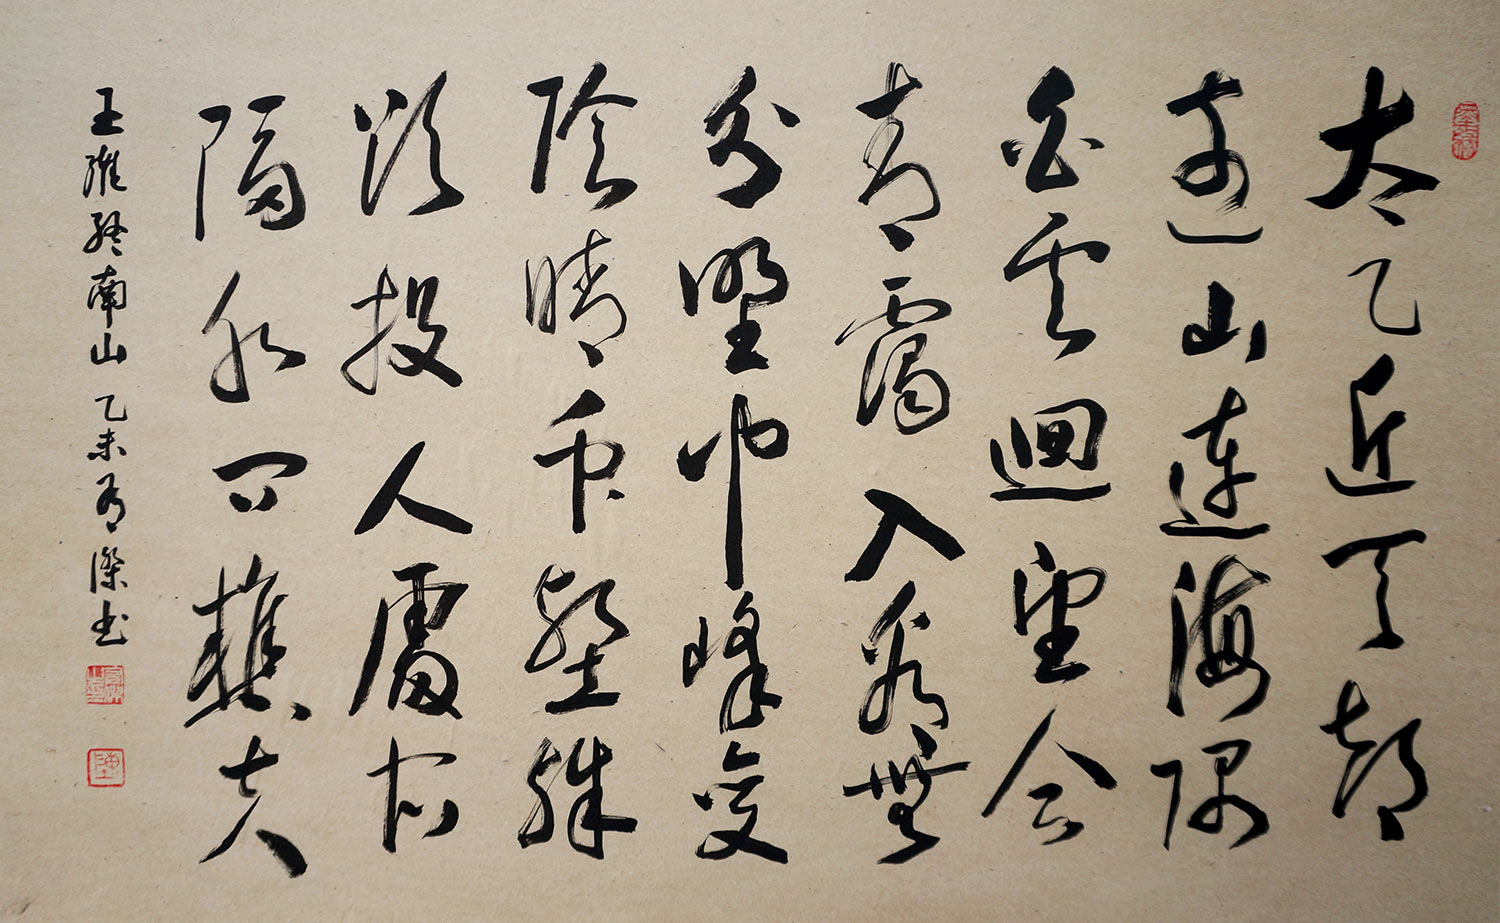 太乙近天都
連山連海隅
白云迴望合
青靄入看無
分野中峰變
陰晴眾壑殊
欲投人處宿
隔水問樵夫
王維終南山 乙未 書